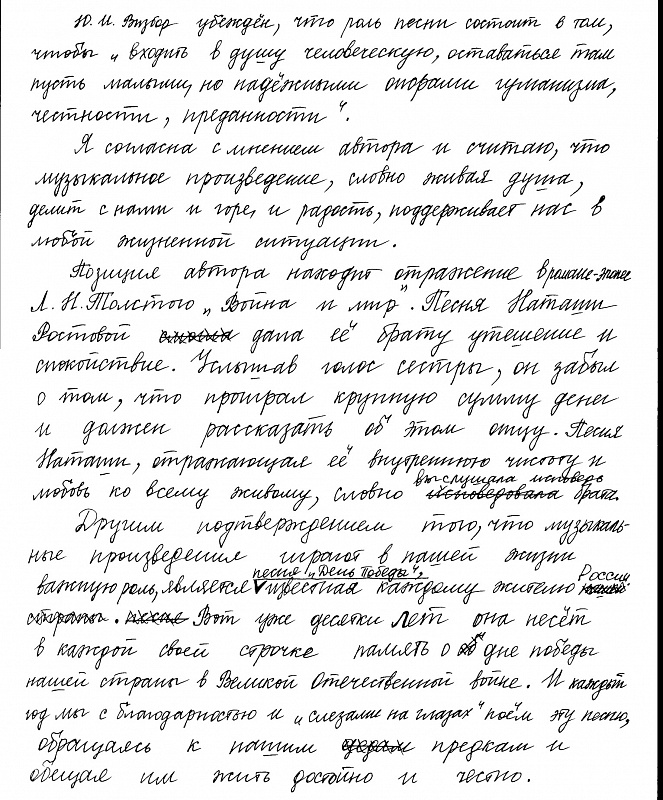 Ю. И. Визбор убеждён, что роль песни состоит в том,
чтобы „входить в душу человеческую, оставаться там
пусть малыми, но надёжными опорами гуманизма,
честности, преданности“.
Я согласна с мнением автора и считаю, что
музыкальное произведение, словно живая душа,
делит с нами и горе, и радость, поддерживает нас в
любой жизненной ситуации.
Позиция автора находит отражение в романе-эпопее
Л. Н. Толстого „Война и мир“. Песня Наташи
Ростовой смогла дала её брату утешение и
спокойствие. Услышав голос сестры, он забыл
о том, что проиграл крупную сумму денег
и должен рассказать об этом отцу. Песня
Наташи, отражающая её внутреннюю чистоту и
любовь ко всему живому, словно исповедовала выслушала исповедь брата.
Другим подтверждением того, что музыкаль-
ные произведения играют в нашей жизни
важную роль, является песня „День Победы“, известная каждому жителю нашей России
страны. песня Вот уже десятки лет она несёт
в каждой своей строчке память о дне победы
нашей страны в Великой Отечественной войне. И каждый
год мы с благодарностью и „слезами на глазах“ поём эту песню,
обращаясь к нашим дедам предкам и
обещая им жить достойно и честно.